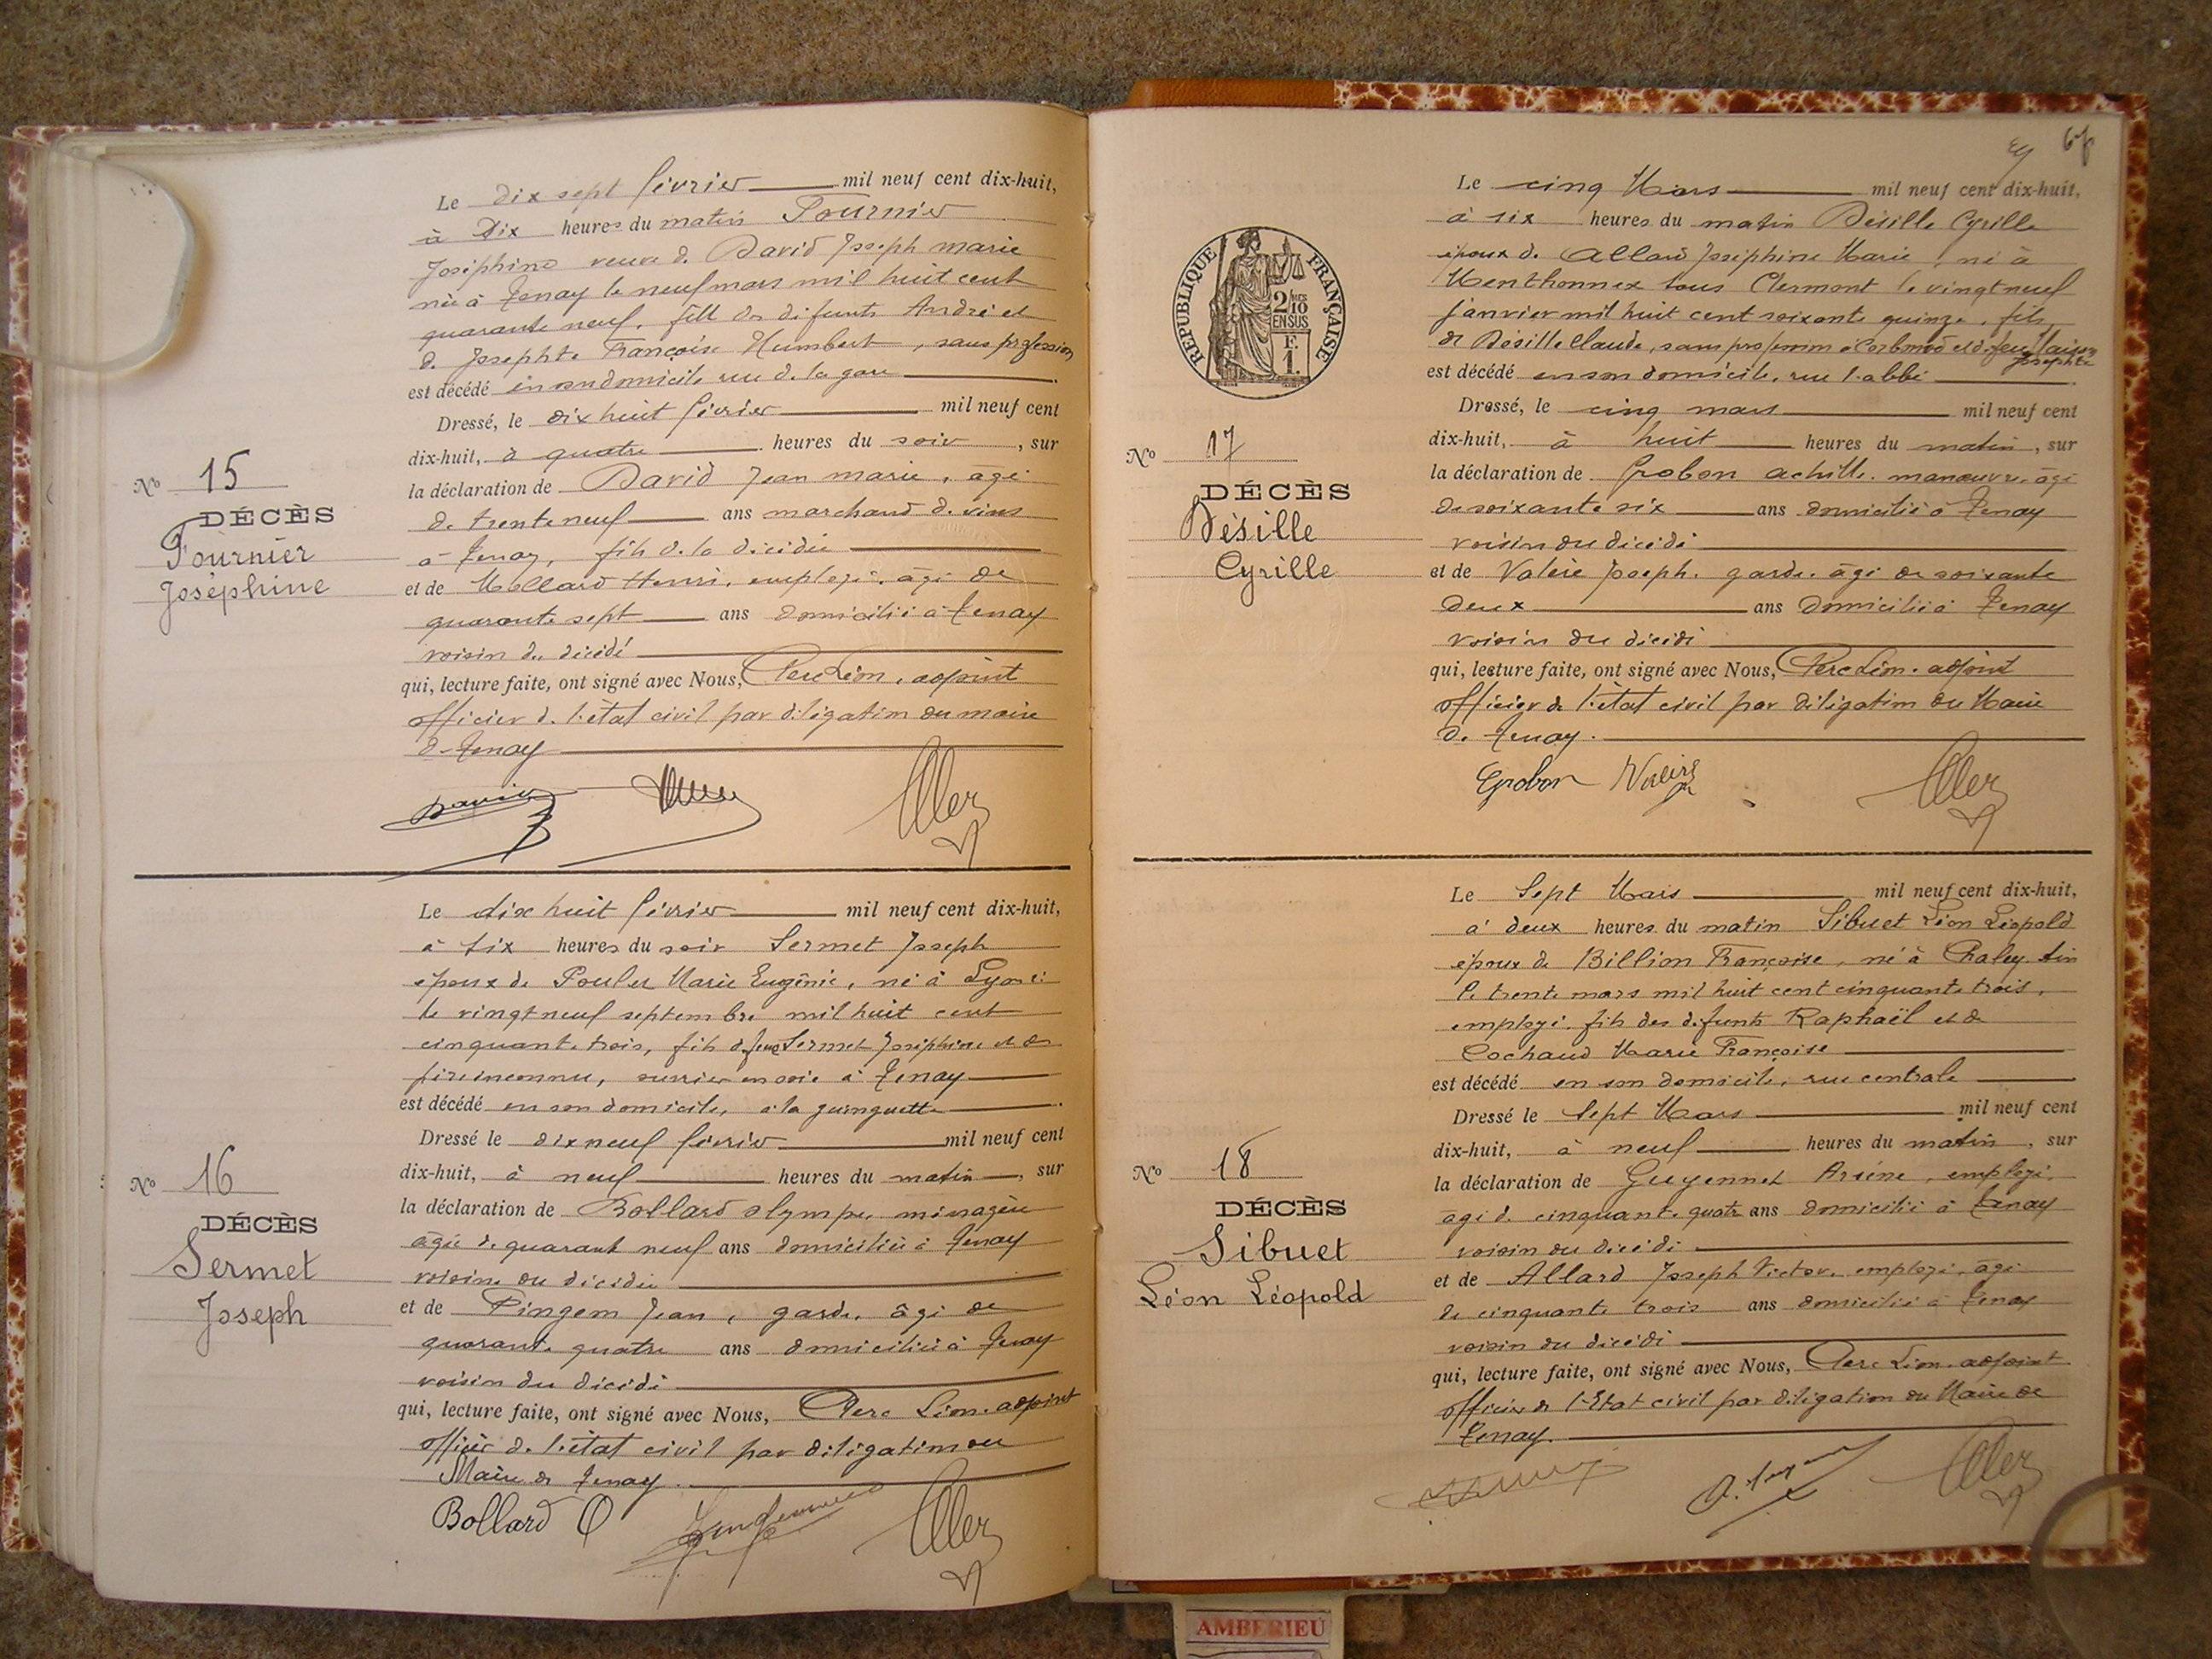 Le dix sept février mil neuf cent dix-huit,
à Dix heures du matin Fournier
Joséphine veuve de David Joseph marie
née à Tenay le neuf mars mil huit cent
quarante neuf, fille des défunts André et
de Josephte Françoise Humbert, sans profession
est décédé en son domicile rue de la gare
Dressé, le dix huit février mil neuf cent
dix-huit, à quatre heures du soir, sur
la déclaration de David Jean marie, agé
de trente neuf ans marchand de vins
à Tenay, fils de la décédée
et de Mollard Henri, employé, âgé de
quarante sept ans domicilié à Tenay
voisin du décédé
qui, lecture faite, ont signé avec Nous, Perc Léon, adjoint
officier de l'état civil par délégation du maire
de Tenay
No 15
DÉCÈS
Fournier
Joséphine
Le dix huit février mil neuf cent dix-huit,
à six heures du soir Sermet Joseph
époux de Marie Eugénie, né à Lyon
le vingt neuf septembre mil huit cent
cinquante trois, fils de feue Sermet Joséphine et de
père inconnu, ouvrier en soie à Tenay
est décédé en son domicile, à la guinguette
Dressé le dix neuf février mil neuf cent
dix-huit, à neuf heures du matin, sur
la déclaration de Bollard olympe, ménagère
agée de quarante neuf ans domiciliée à Tenay
voisine du décédée
et de Pingem Jean, garde, âgé de
quarante quatre ans domicilié à Tenay
voisin du décédé
qui, lecture faite, ont signé avec Nous, Perc Léon adjoint
officier de l'état civil par délégation du
Maire de Tenay.
Bollard O
No 16
DÉCÈS
Sermet
Joseph
67
RÉPUBLIQUE FRANÇAISE
2/10 EN SUS
F. 1.
Le cinq Mars mil neuf cent dix-huit,
à six heures du matin Désille Cyrille
époux de Allard Joséphine Marie, né à
Menthonnex sous Clermont le vingt neuf
janvier mil huit cent soixante quinze, fils
de Désille Claude, sans profession à Corbonod et de feu
Josephte
est décédé en son domicile, rue l'abbé
Dressé, le cinq mars mil neuf cent
dix-huit, à huit heures du matin, sur
la déclaration de Grobon achille, manœuvre, âgé
de soixante six ans domicilié à Tenay
voisin du décédé
et de Valére Joseph, garde, âgé de soixante
deux ans domicilié à Tenay
voisin du décédé
qui, lecture faite, ont signé avec Nous, Perc Léon, adjoint
officier de l'état civil par délégation du Maire
de Tenay.
Grobon
No 17
DÉCÈS
Désille
Cyrille
Le Sept Mars mil neuf cent dix-huit,
à deux heures du matin Sibuet Léon Léopold
époux de Billion Françoise, né à Chaley Ain
le trente mars mil huit cent cinquante trois,
employé, fils des défunts Raphaël et de
Cochand Marie Françoise
est décédé en son domicile, rue centrale
Dressé le Sept Mars mil neuf cent
dix-huit, à neuf heures du matin, sur
la déclaration de Guyennet Arsène, employé,
agé de cinquante quatre ans domicilié à Tenay
voisin du décédé
et de Allard Joseph Victor, employé, agé
de cinquante trois ans domicilié à Tenay
voisin du décédé
qui, lecture faite, ont signé avec Nous, Perc Léon adjoint
officier de l'Etat civil par délégation du Maire de
Tenay.
No 18
DÉCÈS
Sibuet
Léon Léopold
AMBERIEU